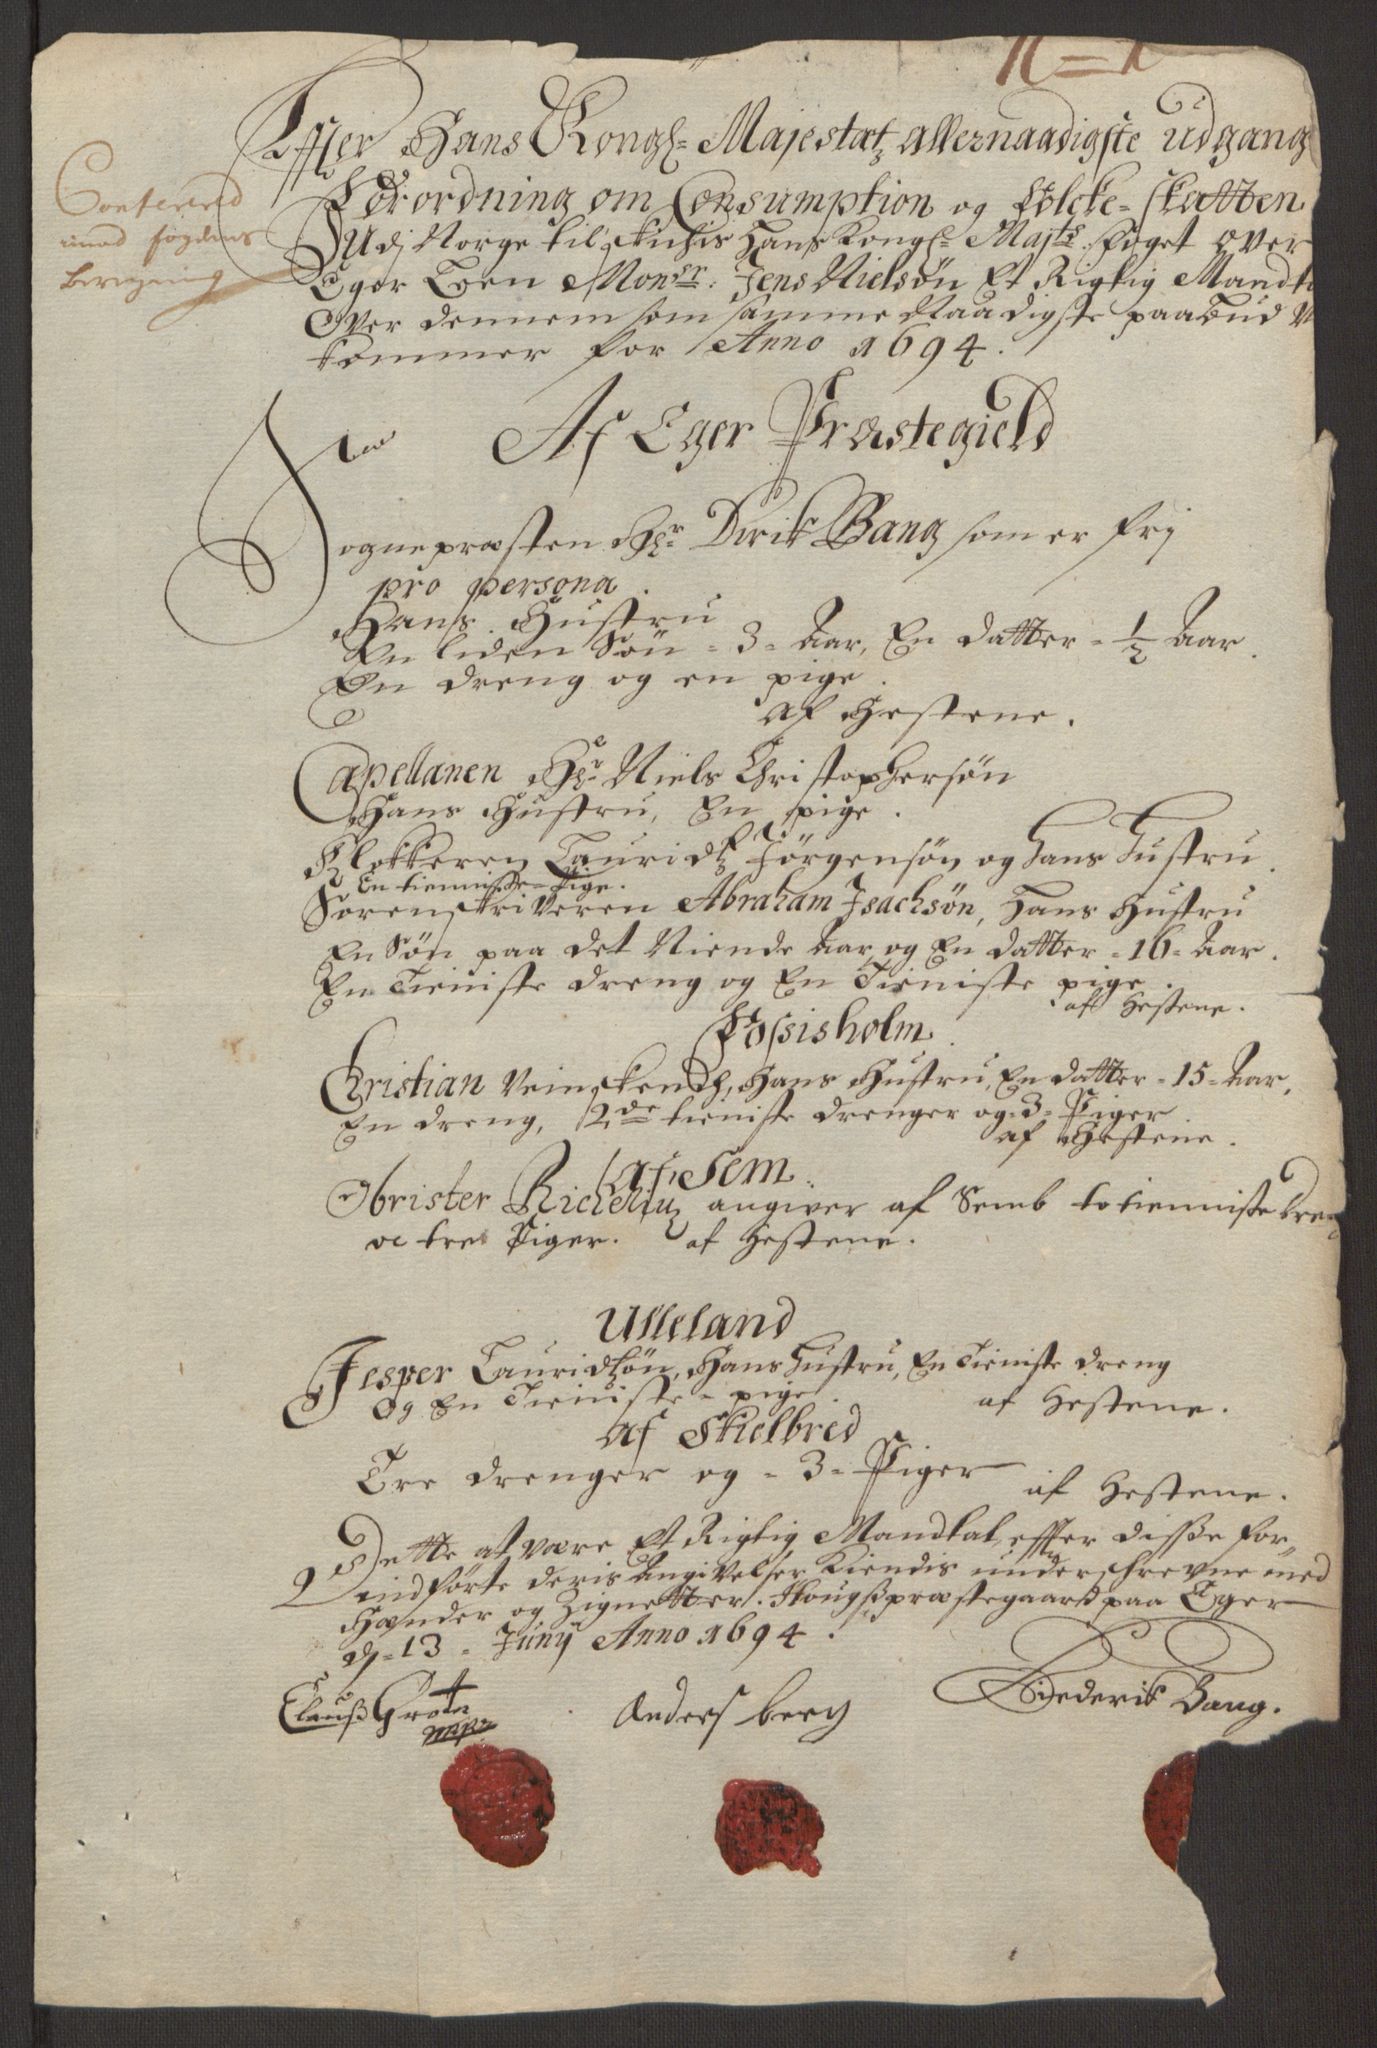 Confererid
imod fogdens
beregning
Effter Hans Kongl: Majestætz allernaadigste Udgang
Forordning om Consumption og folcke-skatten
Udj Norge tilskichis Hans Kongl: Majts foget over
Eger Leen Monsr: Jens Nielsøn Et Rigtig Mandt
Over dennem som samme Naadigste paabud
kommer for Anno 1694.
Af Eger Præstegield
Sognepræsten Hr Dirik Bang som er frj
pro persona.
Hans Hustru
En liden Søn = 3 = Aar, En datter = 1/2 Aar.
En dreng og en pige.
af Hestene.
Capellanen Hr Niels Christophersøn
Hans Hustru, En pige.
Klokkeren Lauridtz Jørgensøn og hans hustru.
En tienniste-Pige.
Sorenskriveren Abraham Isachsøn, Hans Hustru
En Søn paa det Niende Aar, og En datter = 16 = Aar.
En Tieniste dreng og En Tieniste pige.
af Hestene.
Fossisholm.
Christian Veinskench, Hans Hustru, En datter = 15 = Aar,
En dreng, 2de tieniste drenger og = 3 = Piger.
af Hestene.
af Sem.
Obrister Richeliu angiver af Semb to tienniste dre
oc tre Piger. af Hestene.
Ulleland
Jesper Lauridtzøn, Hans Hustru, En Tieniste dreng
Og En Tieniste-pige.
af Hestene.
af Skielbred
Tre drenger og = 3 = Piger
af Hestene.
Dette at være Et Rigtig Mandtal effter disse for
indførte deris Angivelser Kiendis underschrevne med
Hænder og Zignetter. Hougs præstegaard paa Eger
d. 13 = Junij Anno 1694.
Clauss Groten
mpp
Anders berg
Diederik Bang.